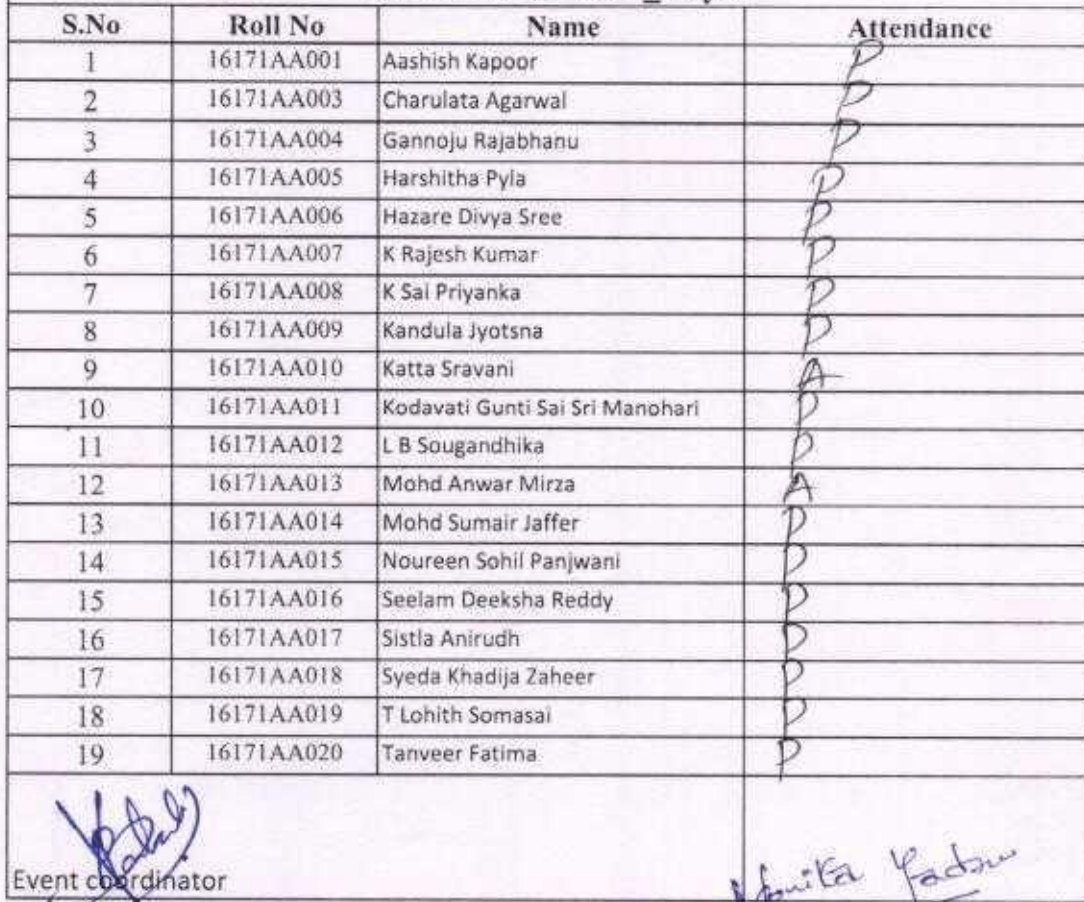 S.No Roll No Name Attendance
1 16171AA001 Aashish Kapoor P
2 16171AA003 Charulata Agarwal P
3 16171AA004 Gannoju Rajabhanu P
4 16171AA005 Harshitha Pyla P
5 16171AA006 Hazare Divya Sree P
6 16171AA007 K Rajesh Kumar P
7 16171AA008 K Sai Priyanka P
8 16171AA009 Kandula Jyotsna P
9 16171AA010 Katta Sravani A
10 16171AA011 Kodavati Gunti Sai Sri Manohari P
11 16171AA012 L B Sougandhika P
12 16171AA013 Mohd Anwar Mirza A
13 16171AA014 Mohd Sumair Jaffer P
14 16171AA015 Noureen Sohil Panjwani P
15 16171AA016 Seelam Deeksha Reddy P
16 16171AA017 Sistla Anirudh P
17 16171AA018 Syeda Khadija Zaheer P
18 16171AA019 T Lohith Somasai P
19 16171AA020 Tanveer Fatima P
Event coordinator